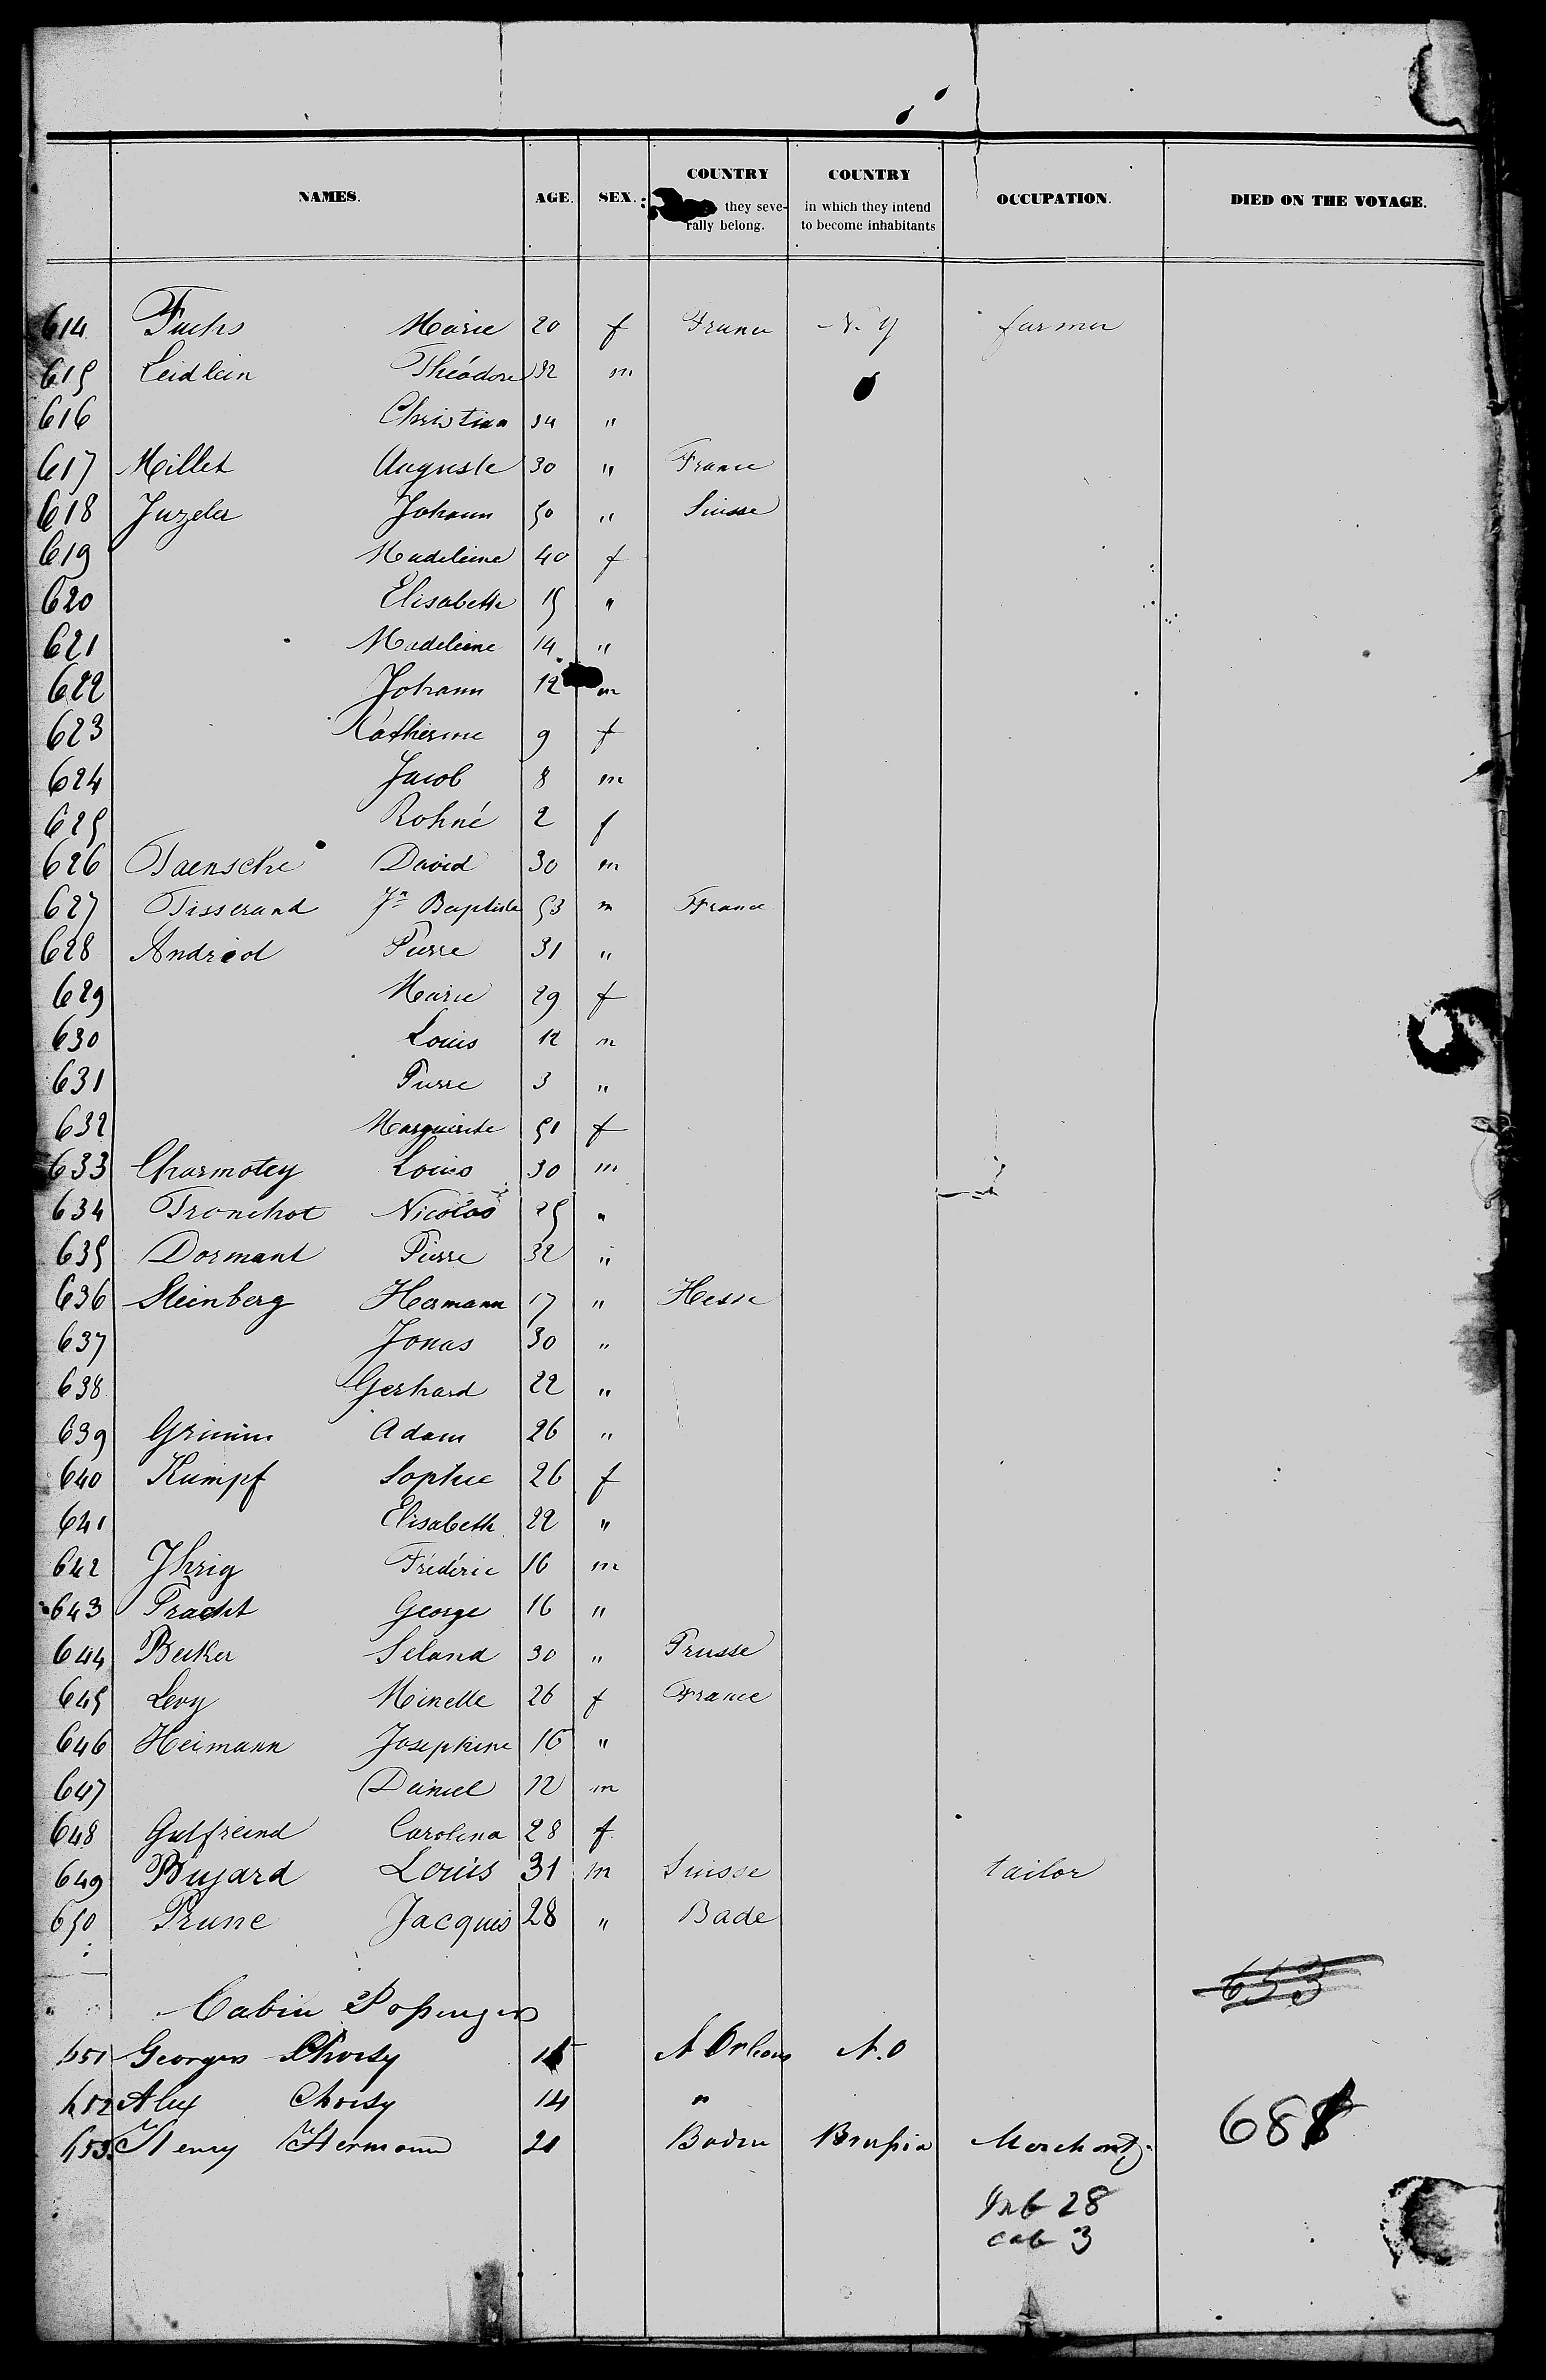 NAMES. AGE. SEX. COUNTRY they seve- rally belong. COUNTRY in which they intend to become inhabitants OCCUPATION. DIED ON THE VOYAGE.
614 Fuchs Marie 20 f France N. Y farmer
615 Leidlein Théodore 32 m
616 Christian 34 "
617 Millet Auguste 30 " France
618 Juzeler Johann 50 " Suisse
619 Madeleine 40 f
620 Elisabeth 15 "
621 Madeleine 14 "
622 Johann 12 m
623 Catherine 9 f
624 Jacob 8 m
625 Rohné 2 f
626 Taensche David 30 m
627 Tisserand Jn Baptiste 53 m France
628 Andriot Pierre 31 "
629 Marie 29 f
630 Louis 12 m
631 Pierre 3 "
632 Marguerite 51 f
633 Charmotey Louis 30 m
634 Tronchot Nicolas 25 "
635 Dormant Pierre 32 "
636 Steinberg Hermann 17 " Hesse
637 Jonas 30 "
638 Gerhard 22 "
639 Grimm Adam 26 "
640 Kumpf Sophie 26 f
641 Elisabeth 22 "
642 Jhrig Frédéric 16 m
643 Tracht George 16 "
644 Becker Seland 30 " Prusse
645 Levy Minette 26 f France
646 Heimann Josephine 16 "
647 Daniel 12 m
648 Gutfreind Carolina 28 f
649 Bujard Louis 31 m Suisse tailor
650 Prune Jacques 28 " Bade
653
Cabin Passengers
651 Georges Choisy N Orleans N.O
652 Alex Choisy 14 "
653 Henry Hermann 21 Baden Merchant
688
Inf 28
cab 3